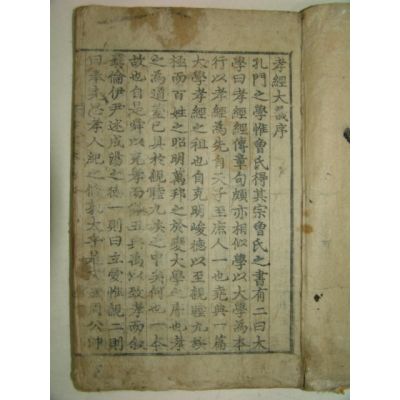 孝經大義序
孔門之學惟曾氏得其宗曾氏之書有二曰大
學曰孝經經傳章句頗亦相似學以大學為本
行以孝經為先自天子至庶人一也堯典一篇
大學孝經之祖也自克明峻德以至親睦九族
極而百姓之昭明萬邦之於變大學之序也孝
之為道蓋已具於親睦九族之中矣何也一本
故也自是舜以克孝而徽五典禹以致孝而敘
彝倫伊尹述成湯之德一則曰立愛惟親二則
曰奉先思孝人紀之修孰大乎是文王周公帥